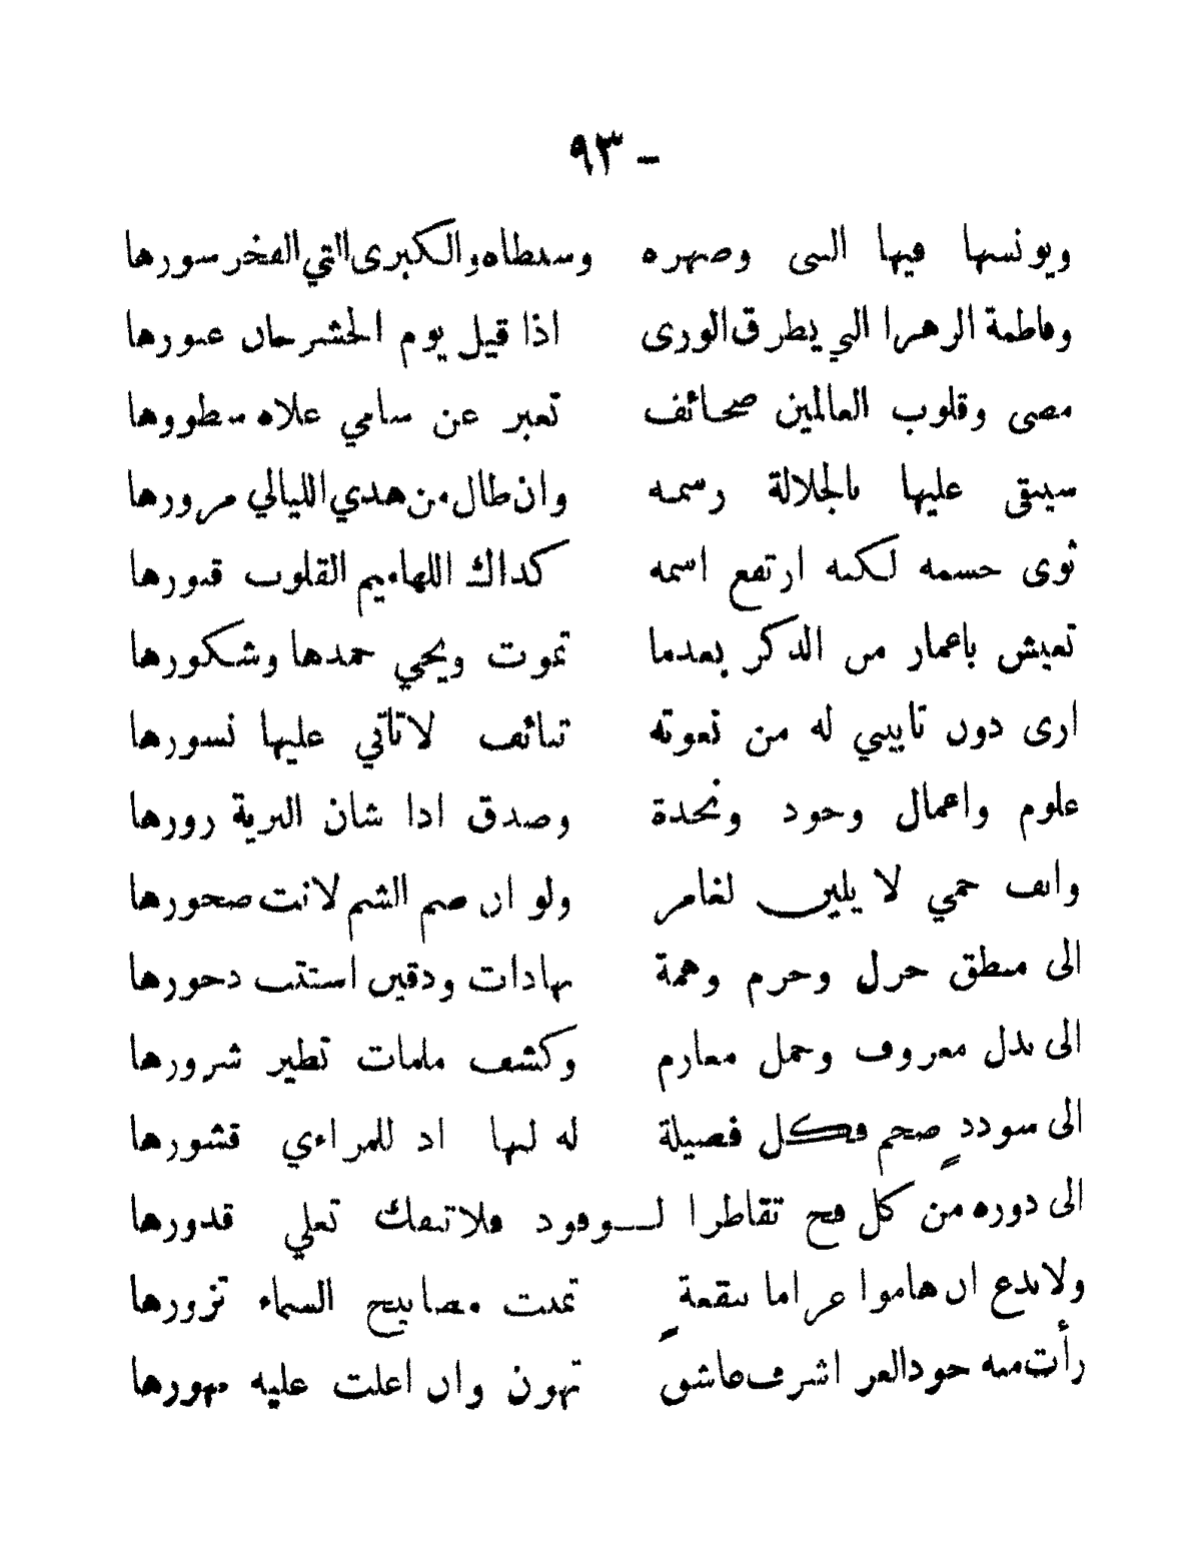 - ٩٣
ويونسها فيها النبى وصهره وسبطاه والكبرى التي الفخر سورها
وفاطمة الزهرا التي يطرق الورى اذا قيل يوم الحشر حان عبورها
مضى وقلوب العالمين صحائف تعبر عن سامي علاه سطورها
سيبقى عليها بالجلالة رسمه وان طال من هدي الليالي مرورها
ثوى جسمه لكنه ارتفع اسمه كذاك اللهاميم القلوب قبورها
تعيش باعمار من الذكر بعدما تموت ويحيي حمدها وشكورها
ارى دون تابيني له من نعوته تنائف لا تأتي عليها نسورها
علوم واعمال وجود ونجدة وصدق اذا شان البرية زورها
وانف حمي لا يلين لغامز ولو ان صم الشم لانت صخورها
الى منطق جزل وحزم وهمة بهادات ودقين استتب دحورها
الى بذل معروف وحمل مغارم وكشف ملمات تطير شرورها
الى سوددٍ ضخم فكل فضيلة له لبها اذ للمراءي قشورها
الى دوره من كل فج تقاطرا لــوفود فلا تنفك تغلي قدورها
ولا بدع ان هاموا غراما ببقعةٍ تمنت مصابيح السماء تزورها
رأت منه خود العز اشرف عاشق تهون وان اغلت عليه مهورها